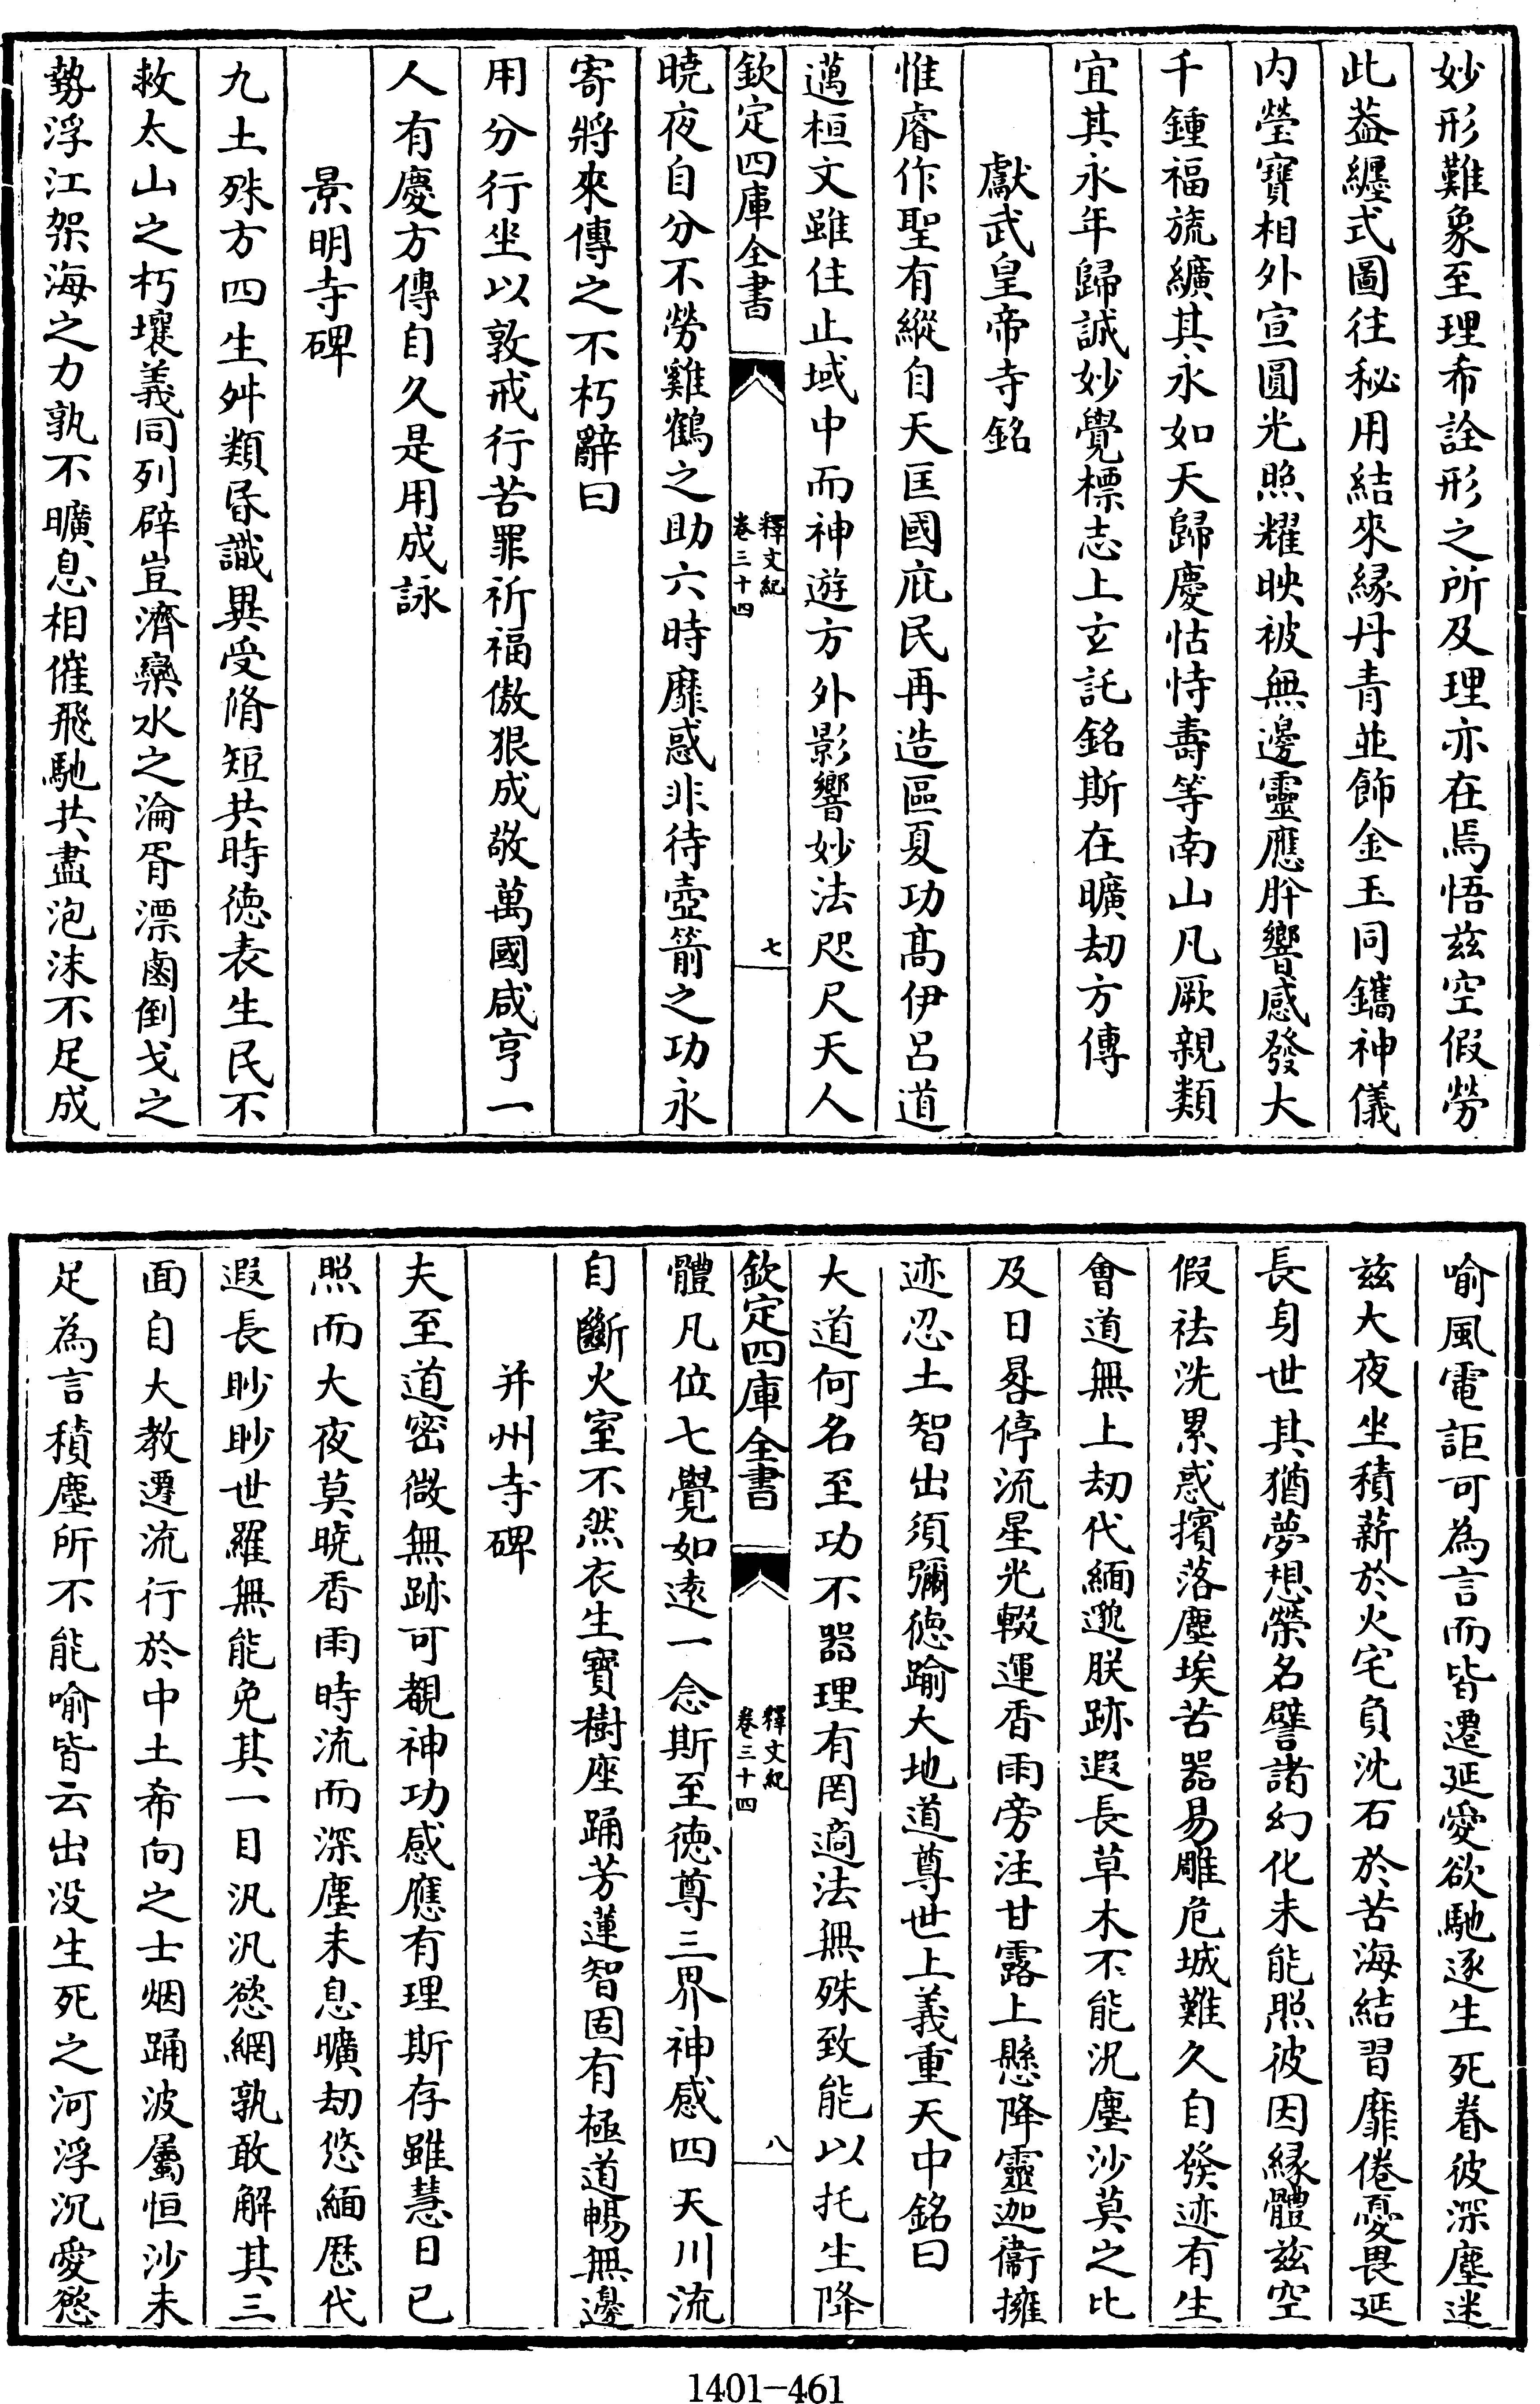 妙形難象至理希詮形之所及理亦在焉悟茲空假勞
此葢纒式圖往秘用結來縁丹青並飾金玉同鐫神儀
内瑩寳相外宣圓光照耀映被無邊靈應肸響感發大
千鍾福旒纊其永如天歸慶怙恃壽等南山凡厥親類
宜其永年歸誠妙覺標志上玄託銘斯在曠劫方傳
獻武皇帝寺銘
惟睿作聖有縱自天匡國庇民再造區夏功髙伊呂道
邁桓文雖住止域中而神遊方外影響妙法咫尺天人
欽定四庫全書
釋文紀
卷三十四
七
曉夜自分不勞雞鶴之助六時靡惑非待壺箭之功永
寄將來傳之不朽辭曰
用分行坐以敦戒行苦罪祈福傲狠成敬萬國咸亨一
人有慶方傳自久是用成詠
景明寺碑
九土殊方四生舛類昏識異受脩短共時徳表生民不
救太山之朽壤義同列辟豈濟欒水之淪胥漂鹵倒戈之
勢浮江架海之力孰不曠息相催飛馳共盡泡沫不足成
喻風電詎可為言而皆遷延愛欲馳逐生死眷彼深塵迷
兹大夜坐積薪於火宅負沈石於苦海結習靡倦憂畏延
長身世其猶夢想榮名譬諸幻化未能照彼因緣體兹空
假祛洗累惑擯落塵埃苦器易雕危城難久自發迹有生
會道無上劫代緬邈朕跡遐長草木不能況塵沙莫之比
及日晷停流星光輟運香雨旁注甘露上懸降靈迦衞擁
迹忍土智出須彌徳踰大地道尊世上義重天中銘曰
大道何名至功不器理有罔適法無殊致能以托生降
欽定四庫全書
釋文紀
卷三十四
八
體凡位七覺如逺一念斯至徳尊三界神感四天川流
自斷火室不然衣生寳樹座踊芳蓮智固有極道暢無邊
并州寺碑
夫至道密微無跡可覩神功感應有理斯存雖慧日已
照而大夜莫曉香雨時流而深塵未息曠劫悠緬厯代
遐長眇眇世羅無能免其一目汎汎慾網孰敢解其三
面自大教遷流行於中土希向之士烟踊波屬恒沙未
足為言積塵所不能喻皆云出没生死之河浮沉愛慾
1401-461